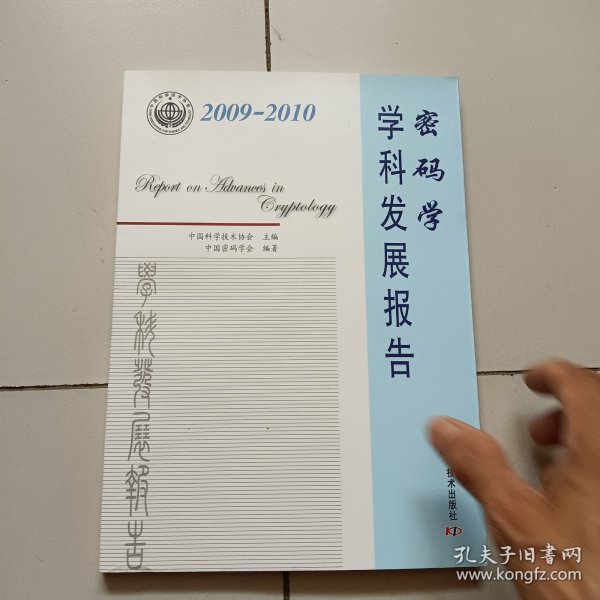 2009-2010
Report on Advances in
Cryptology
中国科学技术协会 主编
中国密码学会 编著
密码学
学科发展报告
學科發展報告
技术出版社
孔夫子旧书网
www.kongfz.com